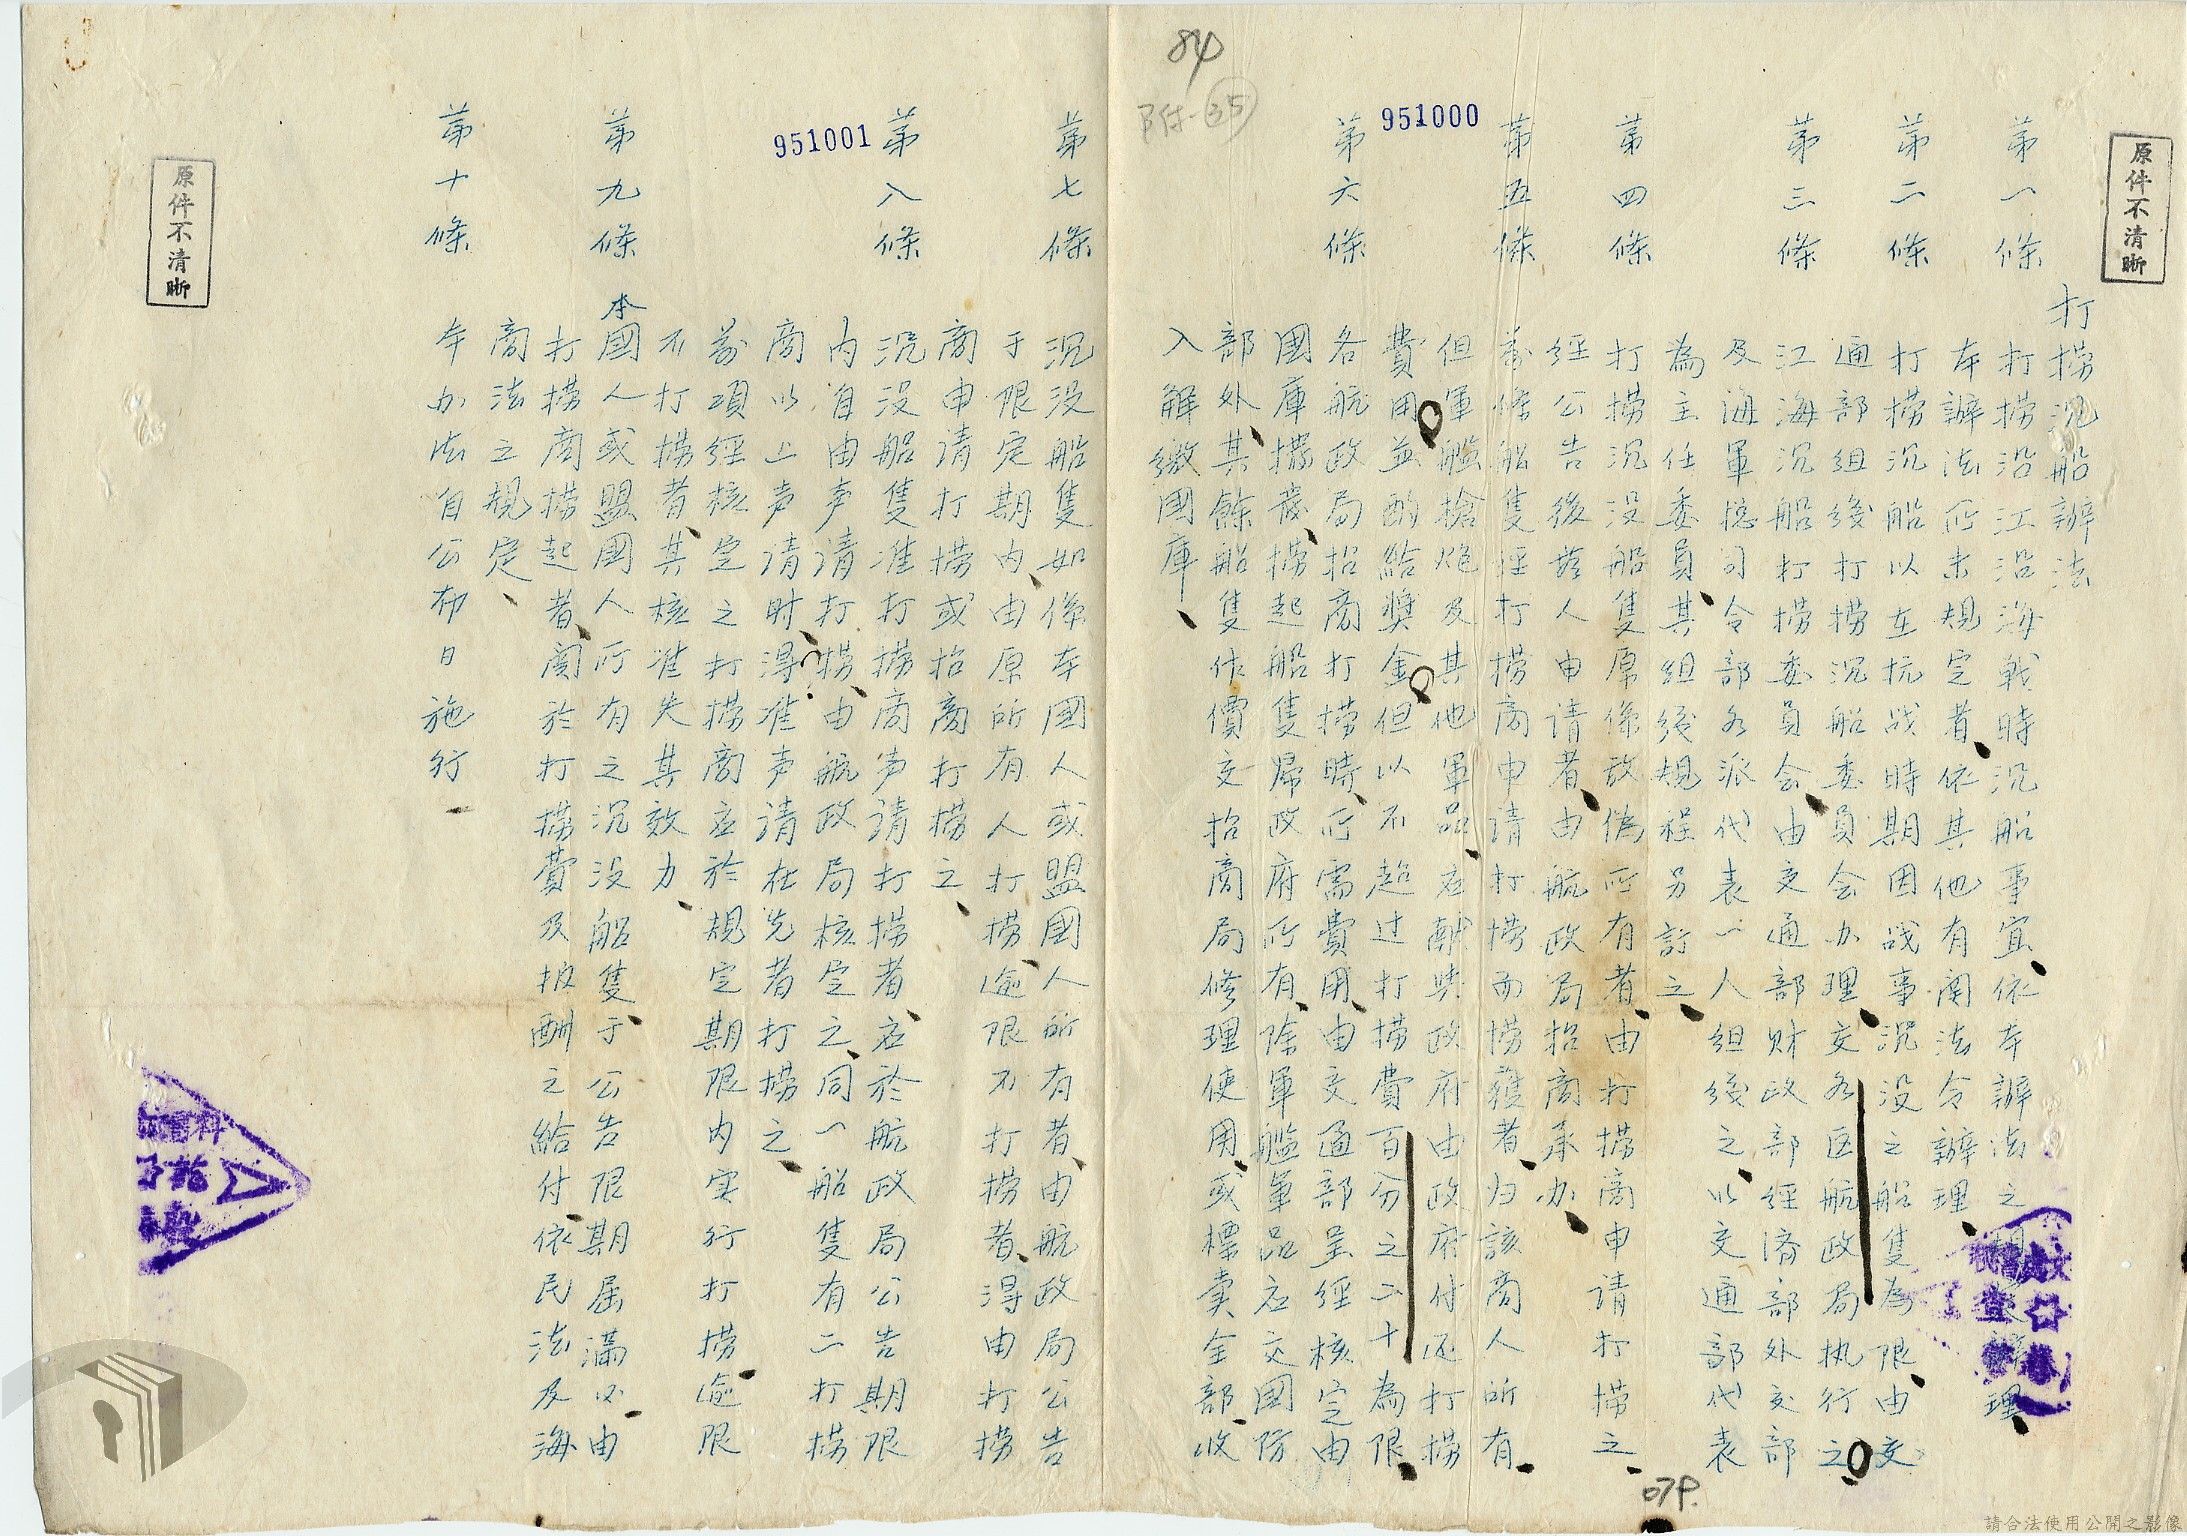 84
附-35
951000
原件不清晰
打撈沉船辦法
第一條 打撈沿江沿海戰時沉船事宜、依本辦法之規定辦理、
本辦法所未規定者、依其他有關法令辦理、
第二條 打撈沉船以在抗战時期因战事沉没之船隻為限、由交
通部組織打撈沉船委員会办理、交各区航政局执行之、
第三條 江海沉船打撈委員会、由交通部財政部經济部外交部
及海軍總司令部各派代表一人組織之、以交通部代表
為主任委員、其組織規程另訂之、
第四條 打撈沉没船隻原係敌偽所有者、由打撈商申请打撈之、
經公告後無人申请者、由航政局招商承办、
第五條 前條船隻經打撈商申请打撈而撈獲者、归該商人所有、
但軍艦槍炮及其他軍品、应献與政府由政府付还打撈
費用並酌給獎金但以不超过打撈費百分之二十為限、
第六條 各航政局招商打撈時、所需費用、由交通部呈經核定由
國庫撥發、撈起船隻歸政府所有、除軍艦軍品应交國防
部外、其餘船隻作價交招商局修理使用、或標卖全部收
入解繳國庫、
079.
951001
第七條 沉没船隻如係本國人或盟國人所有者、由航政局公告
于限定期内、由原所有人打撈、逾限不打撈者、得由打撈
商申请打撈或招商打撈之、
第八條 沉没船隻准打撈商声请打撈者、应於航政局公告期限
内自由声请打撈、由航政局核定之、同一船隻有二打撈
商以上声请时、得准声请在先者打撈之、
前項經核定之打撈商应於規定期限内实行打撈、逾限
不打撈者、其核准失其效力、
第九條 本國人或盟國人所有之沉没船隻、于公告限期屆滿後、由
打撈商撈起者、関於打撈費及报酬之給付、依民法及海
商法之規定、
第十條 本办法自公布日施行
原件不清晰
請合法使用公開之影像